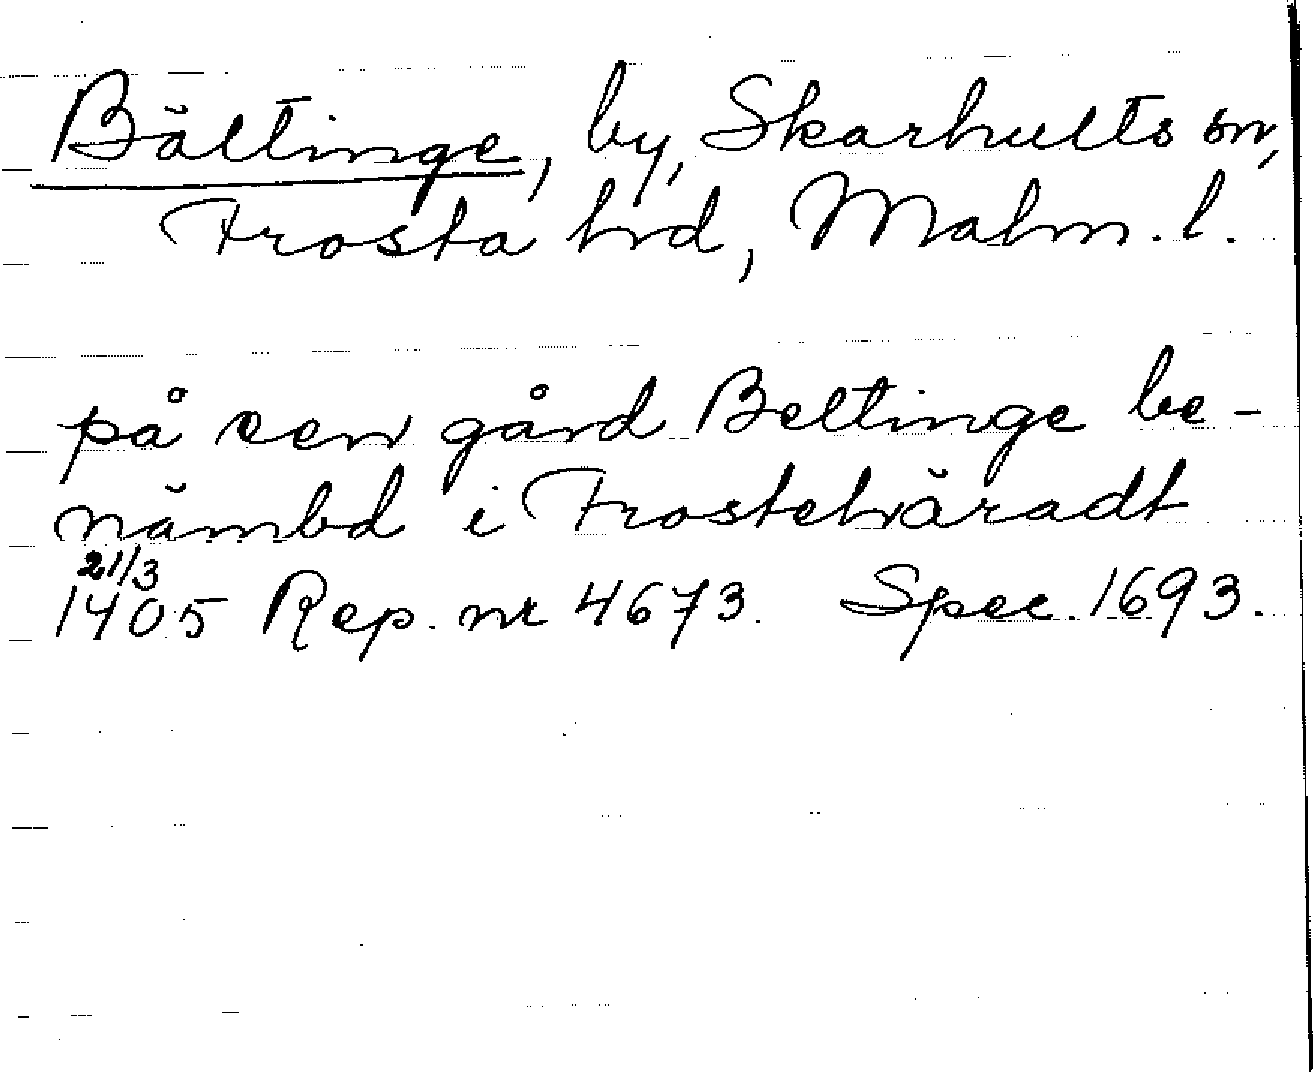 Bältinge, by, Skarhults sn,
Frosta hrd, Malm. l.
på een gård Beltinge be-
nämbd i Frostehäradt
21/3
1405 Rep. nr 4673. Spec. 1693.